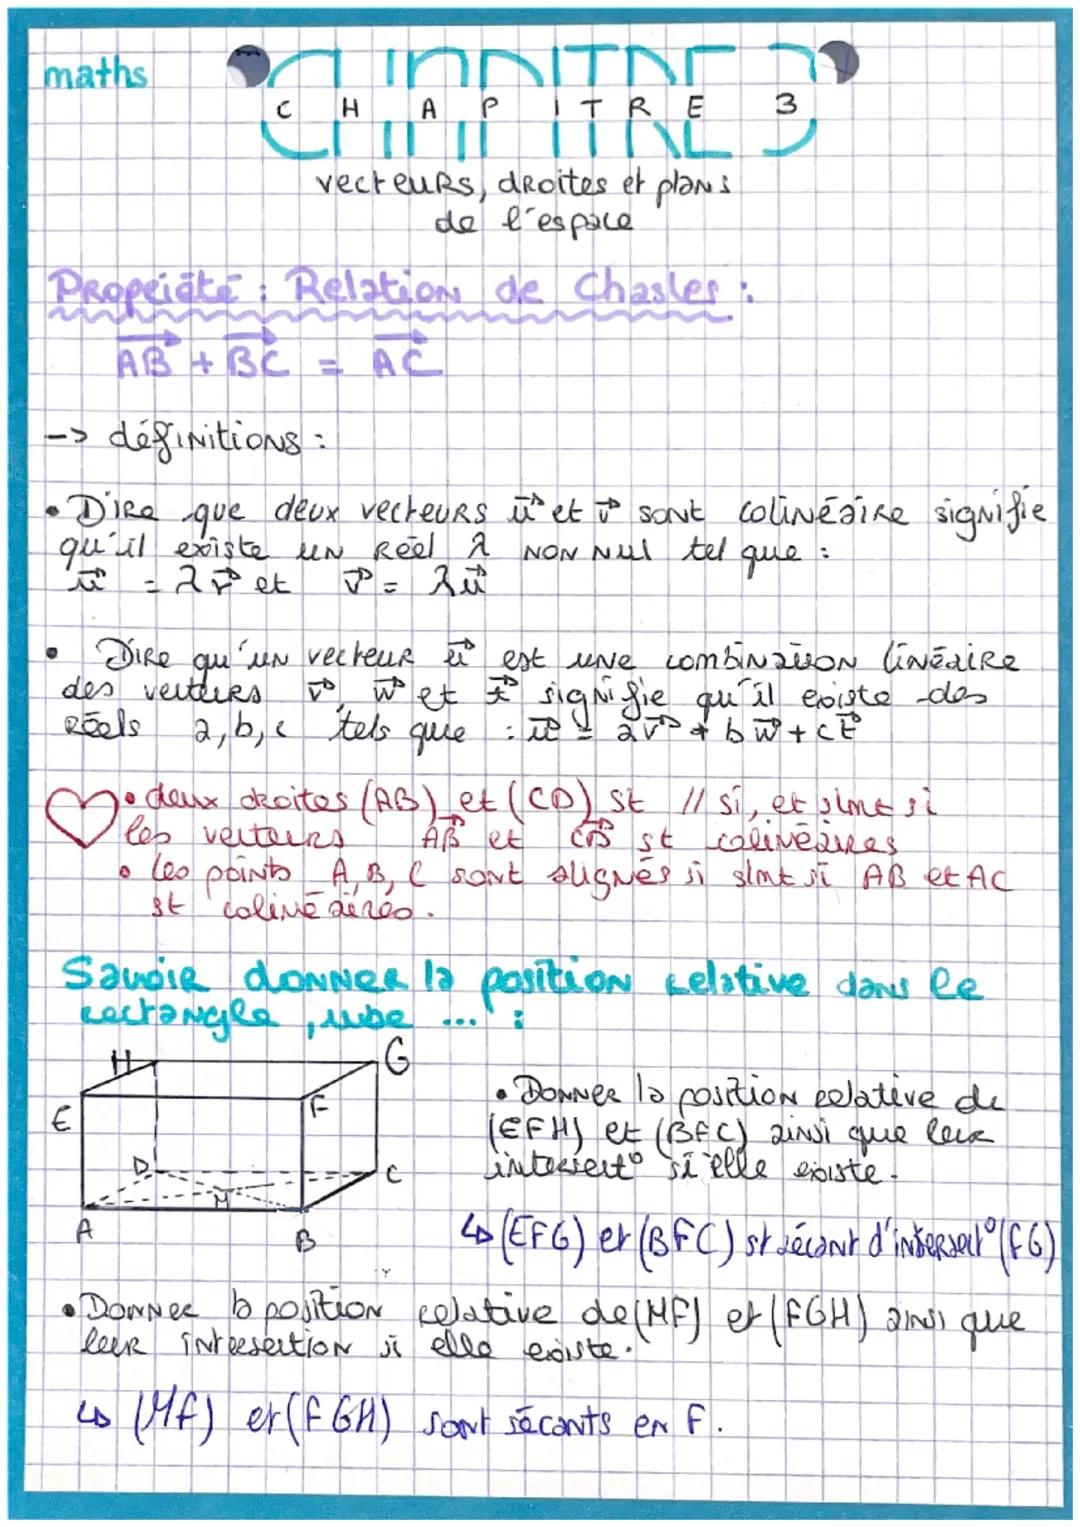 maths
CHAPITRE 3
vecteurs, droites et plans
de l'espace
Propriété : Relation de Chasles :
AB + BC = AC
-> définitions :
• Dire que deux vecteurs u et v sont colinéaire signifie
qu'il existe un réel λ non nul tel que :
u = λv et v = λu
• Dire qu'un vecteur u est une combinaison linéaire
des vecteurs v, w et t signifie qu'il existe des
réels a, b, c tels que : u = av + bw + ct
• deux droites (AB) et (CD) st // si, et slmt si
les vecteurs AB et CD st colinéaires
• les points A, B, C sont alignés si slmt si AB et AC
st colinéaires.
Savoir donner la position relative dans le
rectangle, cube ... :
H
G
E
F
D
C
M
A
B
• Donner la position relative de
(EFH) et (BFC) ainsi que leur
intersect° si elle existe.
↳ (EFG) et (BFC) st sécant d'intersect° (FG)
• Donner la position relative de (MF) et (FGH) ainsi que
leur intersection si elle existe.
↳ (MF) et (FGH) sont sécants en F.